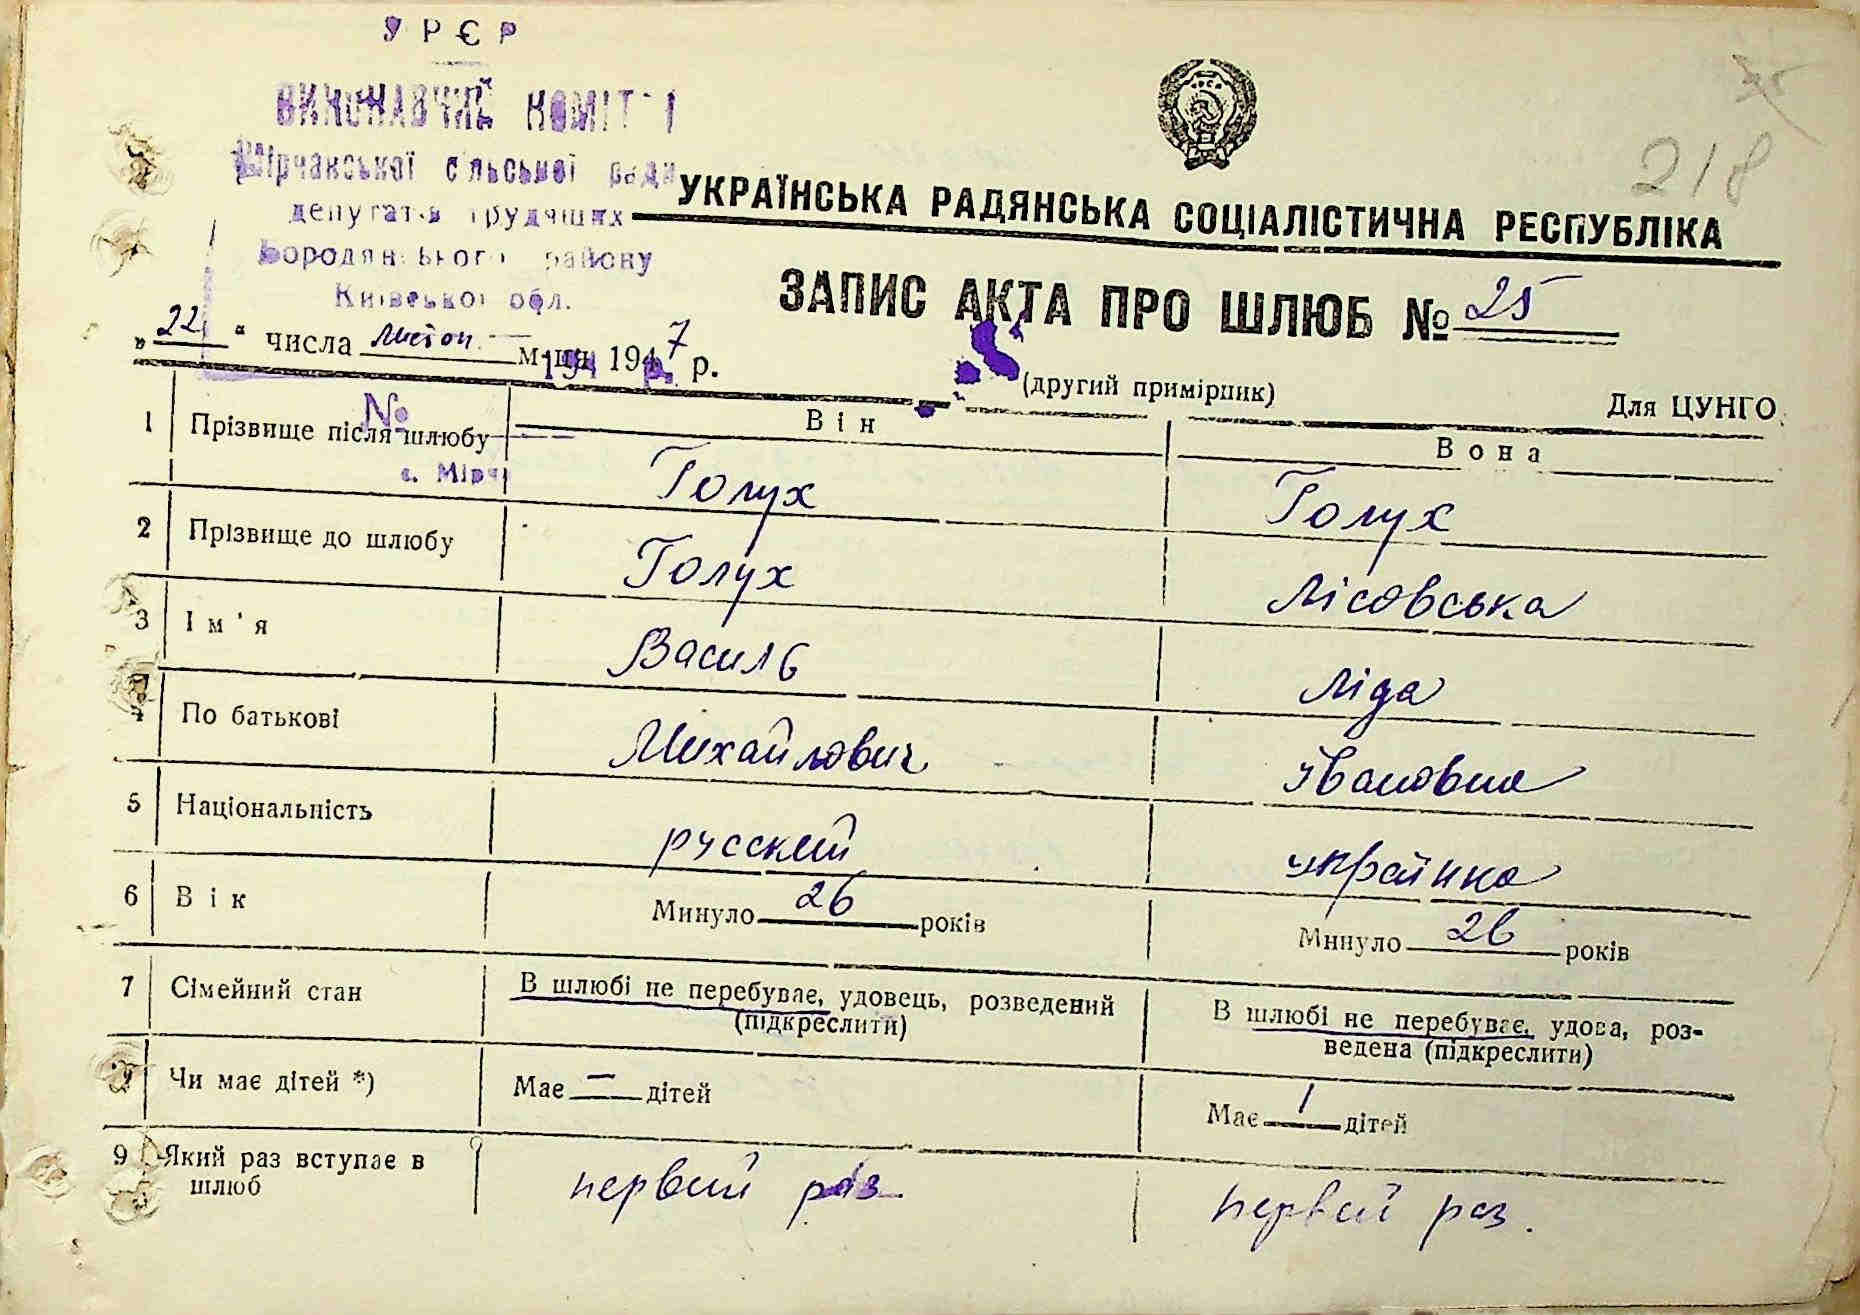 УРЄР
ВИКОНАВЧИЙ КОМІТ І
Мірчанської сільської ради
депутатів трудящих
Бородянського району
Київської обл.
218
УКРАЇНСЬКА РАДЯНСЬКА СОЦІАЛІСТИЧНА РЕСПУБЛІКА
ЗАПИС АКТА ПРО ШЛЮБ № 25
„22“ числа листоп. м-ця 1947 р.
194 р.
(другий примірник) Для ЦУНГО.
№
с. Мірч
Він Вона
1 Прізвище після шлюбу Голух Голух
2 Прізвище до шлюбу Голух Лісовська
3 Ім'я Василь Ліда
4 По батькові Михайлович Івановна
5 Національність русский українка
6 Вік Минуло 26 років Минуло 26 років
7 Сімейний стан В шлюбі не перебуває, удовець, розведений (підкреслити) В шлюбі не перебуває, удова, роз-
ведена (підкреслити)
Чи має дітей *) Має — дітей Має 1 дітей
9 Який раз вступає в
шлюб первий раз первий раз.